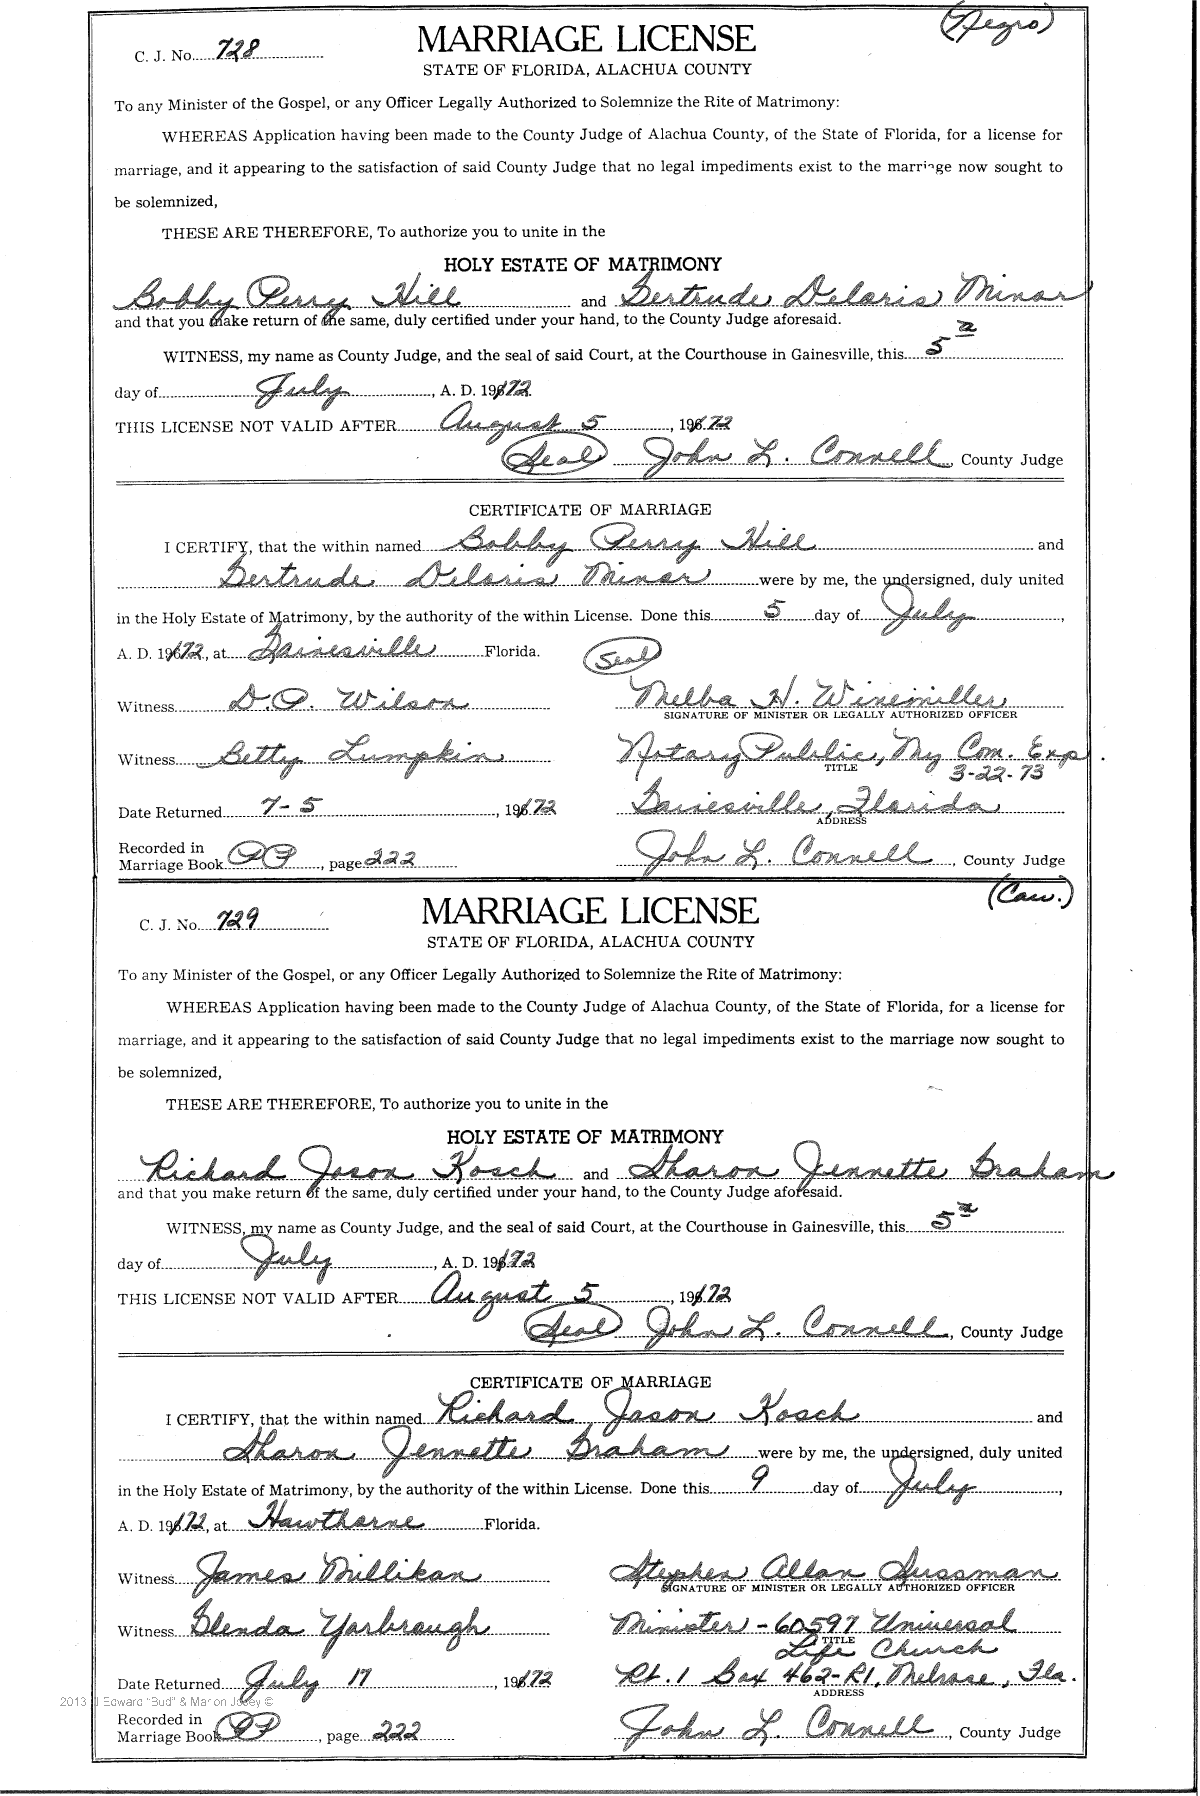 (Negro)
C. J. No. 728 MARRIAGE LICENSE
STATE OF FLORIDA, ALACHUA COUNTY
To any Minister of the Gospel, or any Officer Legally Authorized to Solemnize the Rite of Matrimony:
WHEREAS Application having been made to the County Judge of Alachua County, of the State of Florida, for a license for
marriage, and it appearing to the satisfaction of said County Judge that no legal impediments exist to the marriage now sought to
be solemnized,
THESE ARE THEREFORE, To authorize you to unite in the
HOLY ESTATE OF MATRIMONY
Bobby Perry Hill and Gertrude Deloris Minor
and that you make return of the same, duly certified under your hand, to the County Judge aforesaid.
WITNESS, my name as County Judge, and the seal of said Court, at the Courthouse in Gainesville, this 5
day of July, A. D. 1972.
THIS LICENSE NOT VALID AFTER August 5, 1972
(Seal) John L. Connell, County Judge
CERTIFICATE OF MARRIAGE
I CERTIFY, that the within named Bobby Perry Hill and
Gertrude Deloris Minor were by me, the undersigned, duly united
in the Holy Estate of Matrimony, by the authority of the within License. Done this 5 day of July,
A. D. 1972, at Gainesville Florida. (Seal)
Witness D. P. Wilson Melba H. Winemiller
SIGNATURE OF MINISTER OR LEGALLY AUTHORIZED OFFICER
Witness Betty Lumpkin Notary Public, My Com. Exp.
TITLE 3-22-73
Date Returned 7-5, 1972 Gainesville, Florida
ADDRESS
Recorded in
Marriage Book PP, page 222 John L. Connell, County Judge
(Cau.)
C. J. No. 729 MARRIAGE LICENSE
STATE OF FLORIDA, ALACHUA COUNTY
To any Minister of the Gospel, or any Officer Legally Authorized to Solemnize the Rite of Matrimony:
WHEREAS Application having been made to the County Judge of Alachua County, of the State of Florida, for a license for
marriage, and it appearing to the satisfaction of said County Judge that no legal impediments exist to the marriage now sought to
be solemnized,
THESE ARE THEREFORE, To authorize you to unite in the
HOLY ESTATE OF MATRIMONY
Richard Jason Kosch and Sharon Jennette Graham
and that you make return of the same, duly certified under your hand, to the County Judge aforesaid.
WITNESS, my name as County Judge, and the seal of said Court, at the Courthouse in Gainesville, this 5
day of July, A. D. 1972
THIS LICENSE NOT VALID AFTER August 5, 1972
(Seal) John L. Connell, County Judge
CERTIFICATE OF MARRIAGE
I CERTIFY, that the within named Richard Jason Kosch and
Sharon Jennette Graham were by me, the undersigned, duly united
in the Holy Estate of Matrimony, by the authority of the within License. Done this 9 day of July,
A. D. 1972, at Hawthorne Florida.
Witness James Millikan Stephen Allan Sussman
SIGNATURE OF MINISTER OR LEGALLY AUTHORIZED OFFICER
Witness Glenda Yarbrough Minister - 60597 Universal
TITLE Life Church
Date Returned July 17, 1972 Rt. 1 Box 462-R1, Melrose, Fla.
ADDRESS
2013 J Edward "Bud" & Marion Josey ©
Recorded in
Marriage Book PP, page 222 John L. Connell, County Judge